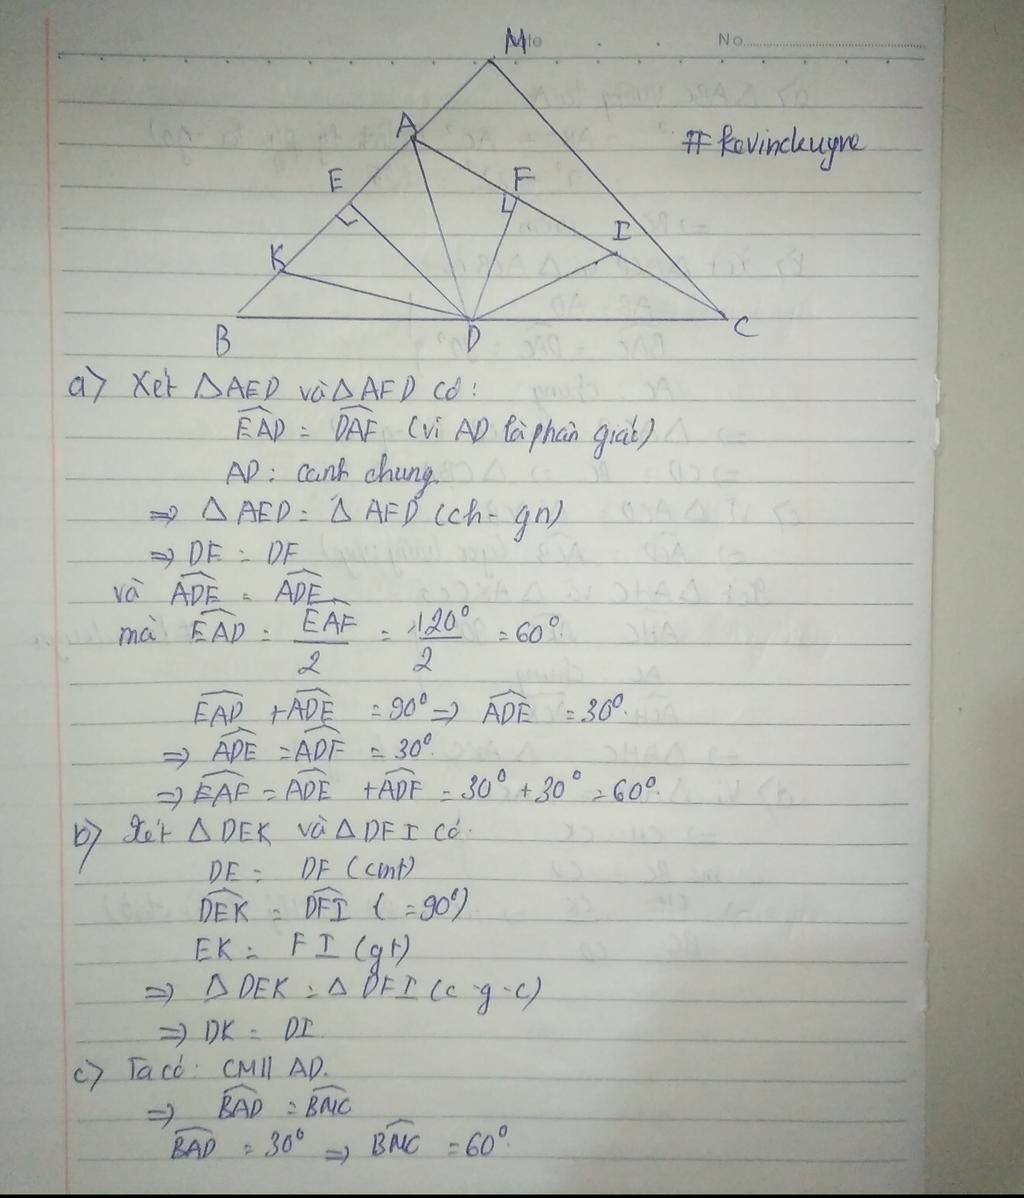 M
No
A
#kevinckuyne
E
F
I
K
B
D
C
a) Xét △AED và △AFD có:
EAD = DAF (vì AD là phân giác)
AD: cạnh chung.
=> △AED = △AFD (ch - gn)
=> DE = DF
và ADE = ADE
mà EAD = EAF/2 = 120°/2 = 60°
EAD + ADE = 90° => ADE = 30°.
=> ADE = ADF = 30°.
=> EAF = ADE + ADF = 30° + 30° = 60°.
b) Xét △DEK và △DFI có.
DE = DF (cmt)
DEK = DFI (=90°)
EK = FI (gt)
=> △DEK = △DFI (c-g-c)
=> DK = DI.
c) Ta có: CM // AD.
=> BAD = BMC
BAD = 30° => BMC = 60°.